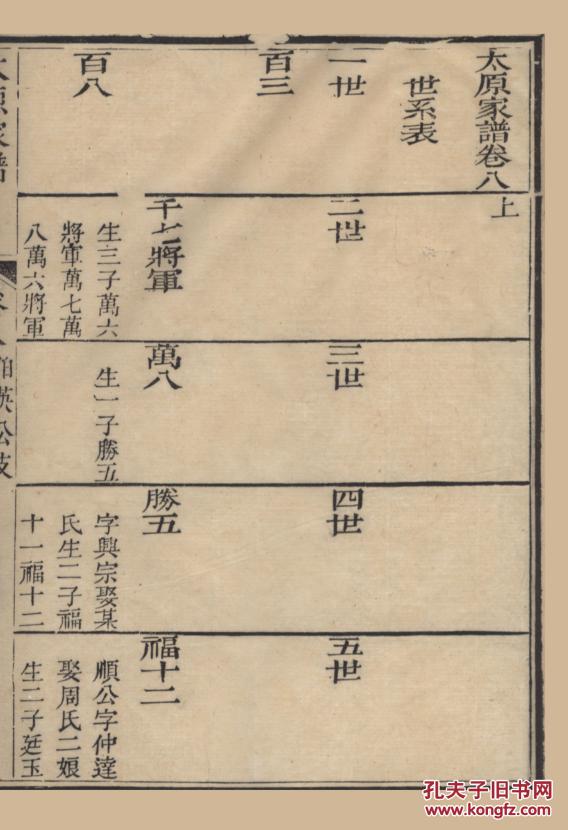 太原家譜卷八上
世系表
一世
百三
百八
二世
千七將軍
生三子萬六
將軍萬七萬
八萬六將軍
三世
萬八
生一子勝五
四世
勝五
字興宗娶某
氏生二子福
十一福十二
五世
福十二
順公字仲達
娶周氏二娘
生二子廷玉
孔夫子旧书网
www.kongfz.com